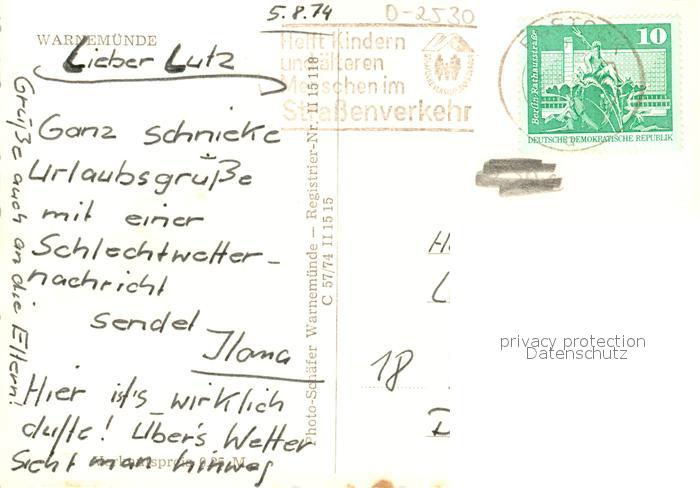 5.8.74
D-2530
WARNEMÜNDE
Lieber Lutz
Ganz schnieke
Urlaubsgrüße
mit einer
Schlechtwetter-
nachricht
sendet
Ilona
Hier ist's wirklich
dufte! Über's Wetter
sieht man hinweg
Grüße auch an die Eltern!
Helft Kindern
und älteren
Menschen im
Straßenverkehr
Photo-Schäfer Warnemünde — Registrier-Nr. II 15 118
C 57/74 II 15 15
10
Berlin, Rathausstraße
DEUTSCHE DEMOKRATISCHE REPUBLIK
H
L
18
D
privacy protection
Datenschutz